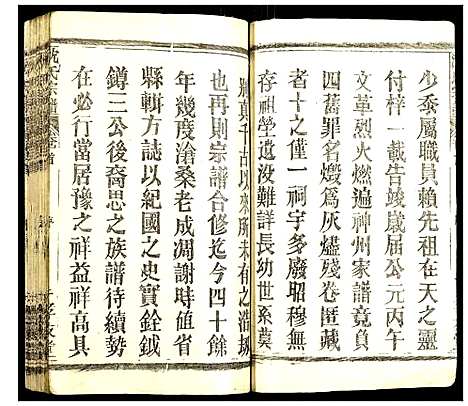 少忝屬職員賴先祖在天之靈
付梓一載告竣歲屆公元丙午
文革烈火燃遍神州家譜竟負
四舊罪名燬爲灰燼殘卷匿藏
者十之僅一祠宇多廢昭穆無
存祖塋遺没難詳長幼世系莫
辨真千古以來所未有之浩劫
也再則宗譜合修迄今四十餘
年幾度滄桑老成凋謝時值省
縣輯方誌以紀國之史實銓鉞
鐏三公後裔思之族譜待續勢
在必行當居豫之祥益祥高具
氏宗譜 卷首